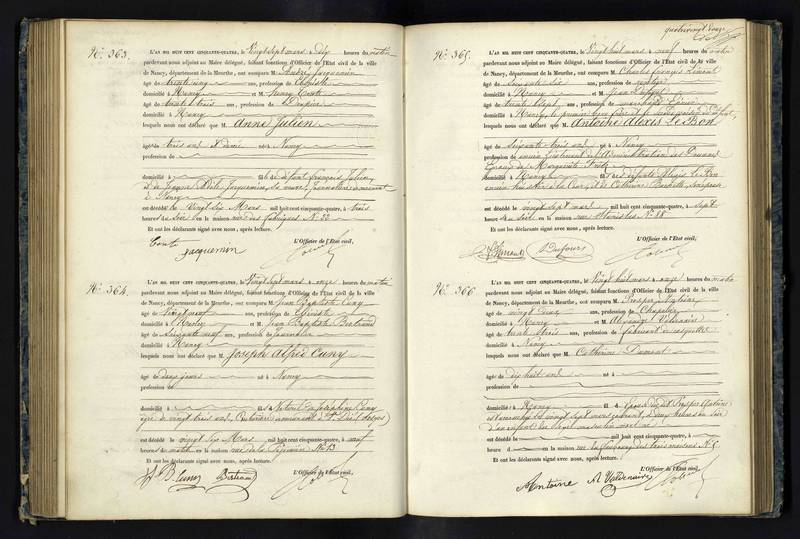 N.º 363.
L'AN MIL HUIT CENT CINQUANTE-QUATRE, le vingt sept mars à dix heures du matin
pardevant nous adjoint au Maire délégué, faisant fonctions d'Officier de l'État civil de la ville
de Nancy, département de la Meurthe, ont comparu M. André Jacquemin
âgé de trente cinq ans, profession de
domicilié à Nancy et M. Conte
âgé de trente trois ans, profession de Drapier
domicilié à Nancy
lesquels nous ont déclaré que M. Anne Julien
âgée de trois ans et demi né à Nancy
profession de
domicilié à fille de défunt François Julien
et de Jacquemin sa veuve, journalière, demeurant
à Nancy
est décédé le vingt six Mars mil huit cent cinquante-quatre, à trois
heures du soir en la maison rue des Fabriques N.º 22
Et ont les déclarants signé avec nous, après lecture.
L'Officier de l'État civil,
Conte
Jacquemin
N.º 364.
L'AN MIL HUIT CENT CINQUANTE-QUATRE, le vingt sept mars à onze heures du matin
pardevant nous adjoint au Maire délégué, faisant fonctions d'Officier de l'État civil de la ville
de Nancy, département de la Meurthe, ont comparu M. Jean Baptiste Cuny
âgé de vingt neuf ans, profession de
domicilié à Nancy et M. Jean Baptiste Bertrand
âgé de soixante neuf ans, profession de journalier
domicilié à Nancy
lesquels nous ont déclaré que M. Joseph Alfred Cuny
âgé de deux jours né à Nancy
profession de
domicilié à fils de Joséphine Cuny
âgée de vingt trois ans, Couturière
est décédé le vingt six Mars mil huit cent cinquante-quatre, à neuf
heures du matin en la maison rue de la Pépinière N.º 13
Et ont les déclarants signé avec nous, après lecture.
L'Officier de l'État civil,
J B Cuny Bertrand
quatre vingt douze
N.º 365.
L'AN MIL HUIT CENT CINQUANTE-QUATRE, le vingt huit mars à neuf heures du matin
pardevant nous adjoint au Maire délégué, faisant fonctions d'Officier de l'État civil de la ville
de Nancy, département de la Meurthe, ont comparu M. Charles François
âgé de soixante six ans, profession de
domicilié à Nancy et M. Jean Dufour
âgé de trente sept ans, profession de marchand
domicilié à Nancy, le premier beau frère
lesquels nous ont déclaré que M. Antoine Alexis Le Bon
âgé de soixante trois ans né à Nancy
profession de
Epoux de Marguerite
domicilié à Nancy fils de défunts Alexis Le Bon
et de Catherine
est décédé le vingt sept mars mil huit cent cinquante-quatre, à sept
heures du soir en la maison rue Stanislas N.º 88
Et ont les déclarants signé avec nous, après lecture.
L'Officier de l'État civil,
Dufour
N.º 366.
L'AN MIL HUIT CENT CINQUANTE-QUATRE, le vingt huit mars à onze heures du matin
pardevant nous adjoint au Maire délégué, faisant fonctions d'Officier de l'État civil de la ville
de Nancy, département de la Meurthe, ont comparu M. Prosper Antoine
âgé de vingt cinq ans, profession de Chapelier
domicilié à Nancy et M. Alexandre Valdenaire
âgé de trente trois ans, profession de fabricant de casquettes
domicilié à Nancy
lesquels nous ont déclaré que M. Catherine Dumont
âgée de dix huit ans
profession de
domiciliée à Nancy Prosper Antoine
est accouchée le vingt sept mars courant, à deux heures du soir
d'un enfant du sexe masculin mort né
est décédé le mil huit cent cinquante-quatre, à
heures d en la maison rue du faubourg des trois maisons N.º 5
Et ont les déclarants signé avec nous, après lecture.
L'Officier de l'État civil,
Antoine A Valdenaire